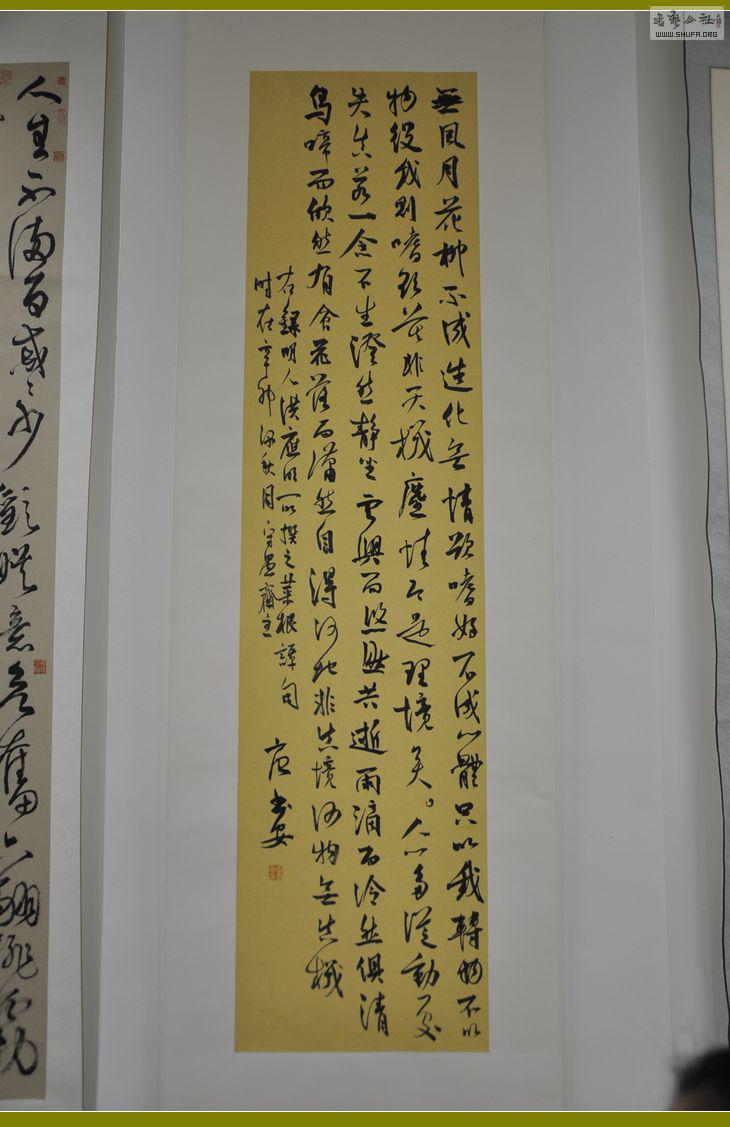 書藝公社
WWW.SHUFA.ORG
無風月花柳不成造化無情欲嗜好不成心體只以我轉物不以
物役我則嗜欲莫非天機塵情即是理境矣。人心多從動處
失真若一念不生澄然靜坐雲興而悠然共逝雨滴而冷然俱清
鳥啼而欣然有會花落而瀟然自得何地非真境何物無真機
右錄明人洪應明所撰之菜根譚句
時在辛卯深秋月守愚齋主
人生不滿百戚戚少歡娛意欲奮六翮排